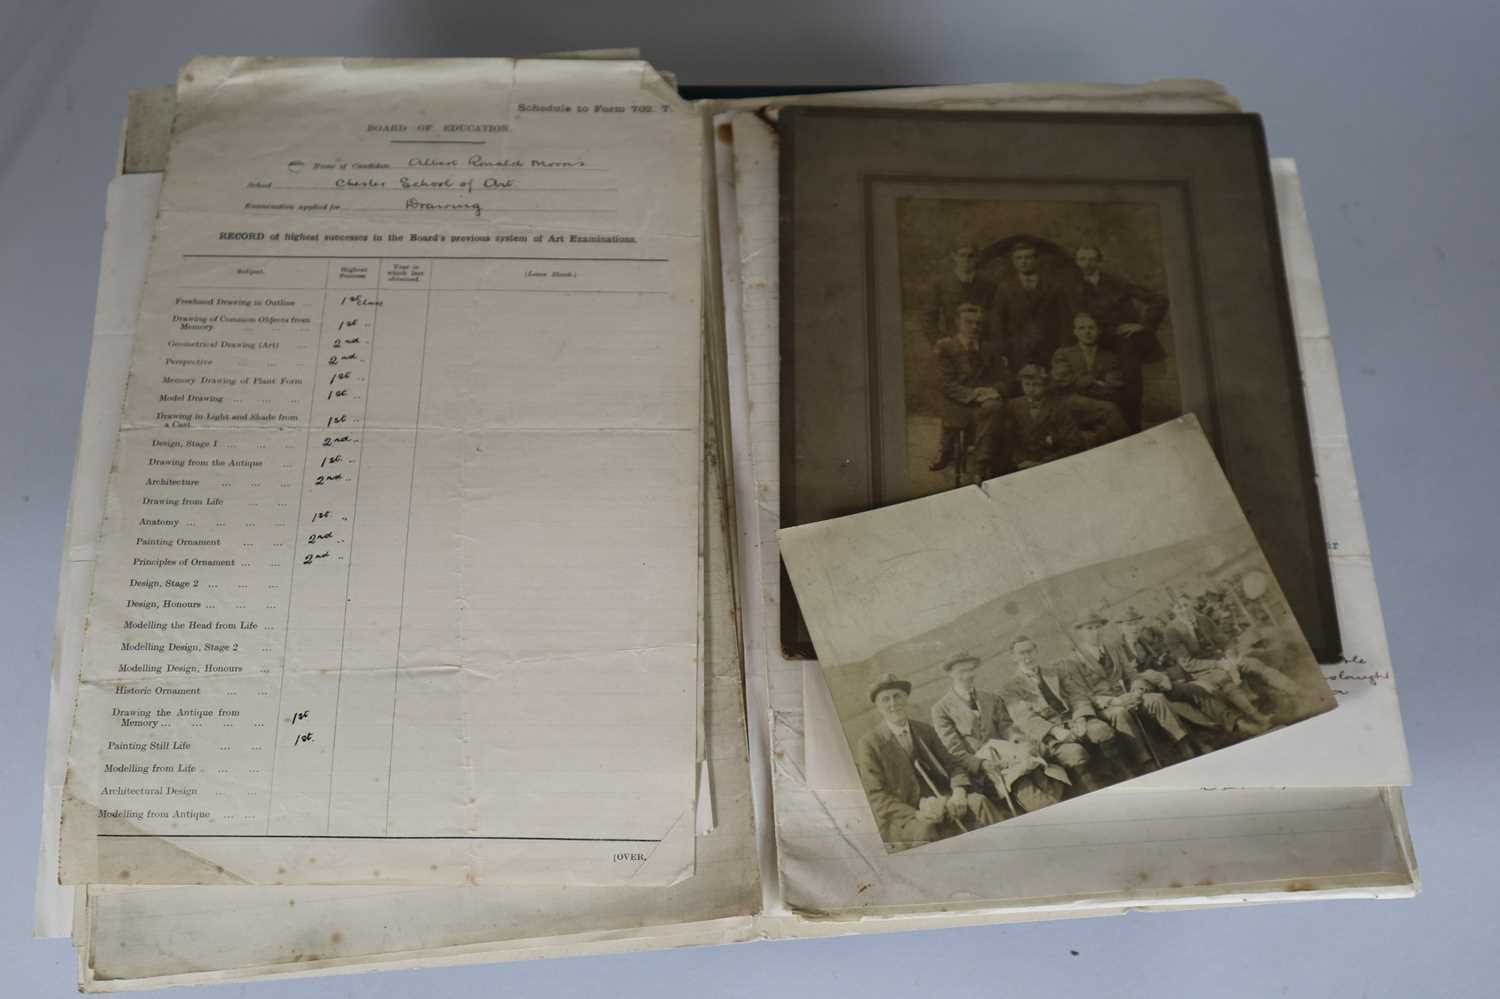 Schedule to Form 702. T.
BOARD OF EDUCATION.
Name of Candidate Albert Ronald Morris
School Chester School of Art.
Examination applied for Drawing
RECORD of highest successes in the Board's previous system of Art Examinations.
Subject. Highest Success. Year in which last obtained. (Leave Blank.)
Freehand Drawing in Outline ... 1st class
Drawing of Common Objects from
Memory ... ... ... 1st "
Geometrical Drawing (Art) ... 2nd "
Perspective ... ... ... 2nd "
Memory Drawing of Plant Form 1st "
Model Drawing ... ... ... 1st "
Drawing in Light and Shade from
a Cast 1st "
Design, Stage 1 ... ... ... 2nd "
Drawing from the Antique ... 1st "
Architecture ... ... ... 2nd "
Drawing from Life ... ...
Anatomy ... ... ... ... 1st "
Painting Ornament ... ... 2nd "
Principles of Ornament ... ... 2nd "
Design, Stage 2 ... ... ...
Design, Honours ... ... ...
Modelling the Head from Life ...
Modelling Design, Stage 2 ...
Modelling Design, Honours ...
Historic Ornament ... ...
Drawing the Antique from
Memory ... ... ... ... 1st
Painting Still Life ... ... 1st.
Modelling from Life ... ...
Architectural Design ... ...
Modelling from Antique ... ...
[OVER.